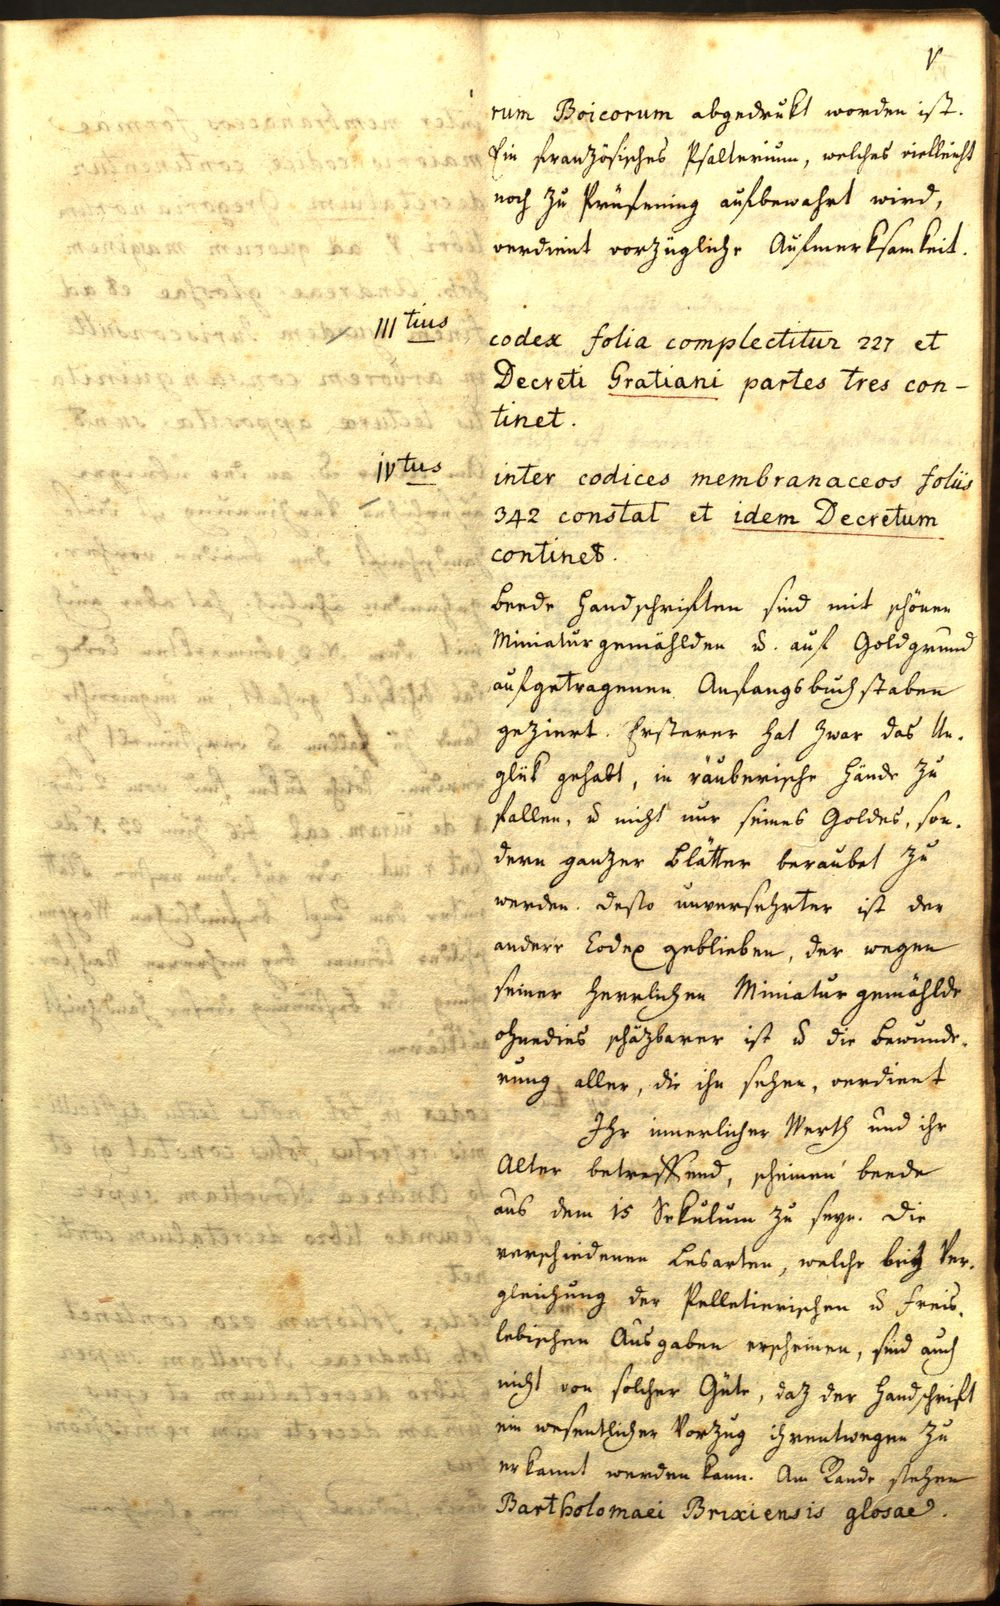 V
rum Boicorum abgedrukt worden ist.
Ein französisches Psalterium, welches vielleicht
noch zu Prüfening aufbewahrt wird,
verdient vorzügliche Aufmerksamkeit.
III tius
codex folia complectitur 227 et
Decreti Gratiani partes tres con-
tinet.
IV tus
inter codices membranaceos foliis
342 constat et idem Decretum
continet.
Beede Handschriften sind mit schönen
Miniaturgemählden u. auf Goldgrund
aufgetragenen Anfangsbuchstaben
geziert. Ersterer hat zwar das Un-
glük gehabt, in räuberische Hände zu
fallen, u nicht nur seines Goldes, son-
dern ganzer Blätter beraubet zu
werden. Desto unversehrter ist der
andere Codex geblieben, der wegen
seiner herrlichen Miniaturgemählde
ohnedies schäzbarer ist u die Bewunde-
rung aller, die ihn sehen, verdient
Ihr innerlicher Werth und ihr
Alter betreffend, scheinen beede
aus dem 15 Sekulum zu seyn. Die
verschiedenen Lesarten, welche bey Ver-
gleichung der Pelletierischen u Freis-
lebischen Ausgaben erscheinen, sind auch
nicht von solcher Güte, daz der Handschrift
ein wesentlicher Vorzug ihrentwegen zu
erkannt werden kann. Am Rande stehen
Bartholomaei Brixiensis glosae.